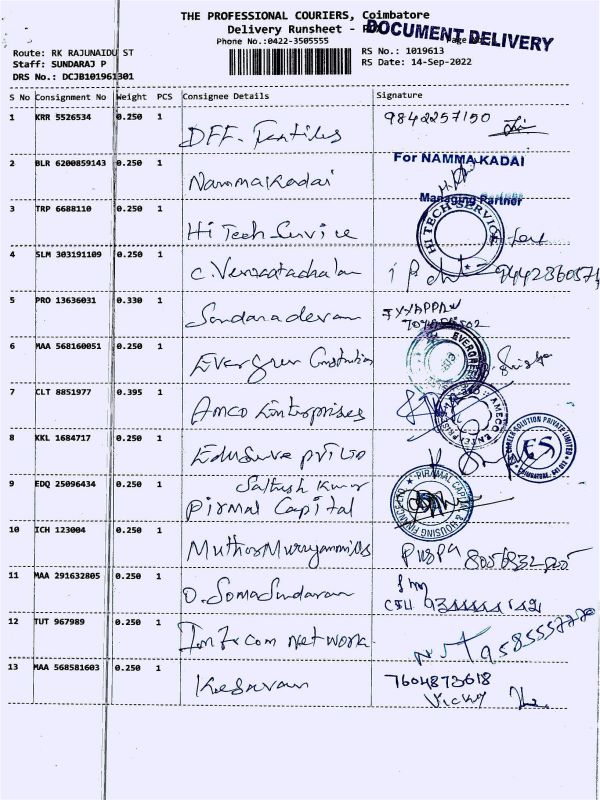 THE PROFESSIONAL COURIERS, Coimbatore
Delivery Runsheet -
DOCUMENT DELIVERY
Phone No.:0422-3505555
Route: RK RAJUNAIDU ST
RS No.: 1019613
Staff: SUNDARAJ P
RS Date: 14-Sep-2022
DRS No.: DCJB101961301
S No Consignment No Weight PCS Consignee Details Signature
1 KRR 5526534 0.250 1 DFF. Textiles 9842257150
2 BLR 6200859143 0.250 1 Nammakadai For NAMMA KADAI
Managing Partner
3 TRP 6688110 0.250 1 Hi Tech Service HI TECH SERVICE
4 SLM 303191109 0.250 1 C. Venkatachalam
5 PRO 13636031 0.330 1 Sondaradevan IYYAPPAN
6 MAA 568160051 0.250 1 Evergreen Construction EVERGREEN
7 CLT 8851977 0.395 1 Amco Enterprises
8 KKL 1684717 0.250 1 Eduserve pvt Ltd
CAREER SOLUTION PRIVATE LIMITED
ES
9 EDQ 25096434 0.250 1 Sathish Kumar
Pirmal Capital PIRAMAL CAPITAL & HOUSING FINANCE
10 ICH 123004 0.250 1
11 MAA 291632805 0.250 1 D. Somasundaram
12 TUT 967989 0.250 1 network 9585557770
13 MAA 568581603 0.250 1 Kesavan 7604873618
Vicky